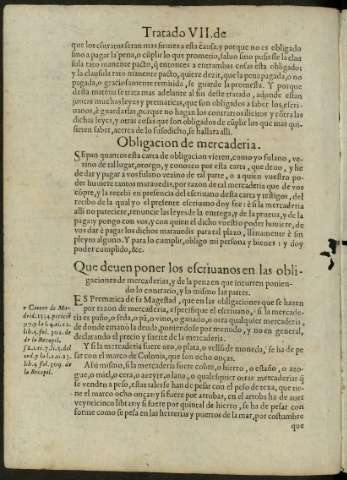 Tratado VII. de
que los cōtratos seran mas firmes a esta causa, y porque no es obligado
sino a pagar la pena, o cūplir lo que prometio, saluo sino pusiesse la clau
sula rato manente pacto, q̄ entonces a entrambas cosas esta obligado:
y la clausula rato manente pacto, quiere dezir, que la pena pagada, o no
pagada, o graciosamente remitida, se guarde la promessa. Y porque
desta materia se trata mas adelante al fin deste tratado, adonde estan
juntas muchas leyes y prematicas, que son obligados a saber los escri-
uanos, à guardarlas, porque no hagan los contratos illicitos y cōtra las
dichas leyes, y otras cosas que son obligados de cūplir los que mas qui-
sieren saber, acerca de lo susodicho, se hallara alli.
Obligacion de mercaderia.
SEpan quantos esta carta de obligacion vieren, como yo fulano, ve-
zino de tal lugar, otorgo, y conozco por esta carta, que deuo, y he
de dar y pagar a vos fulano vezino de tal parte, o a quien vuestro po-
der huuiere tantos marauedis, por razon de tal mercaderia que de vos
cōpre, y la recebi en presencia del escriuano desta carta y testigos, del
recibo de la qual yo el presente escriuano doy fee: è si la mercaderia
alli no pareciere, renuncie las leyes de la entrega, y de la prueua, y de la
paga: y pongo con vos, y con quien el dicho vuestro poder huuiere, de
vos dar è pagar los dichos marauedis para tal plazo, llanamente è sin
pleyto alguno. Y para lo cumplir, obligo mi persona y bienes: y doy
poder cumplido, &c.
Que deuen poner los escriuanos en las obli-
gaciones de mercaderias, y de la pena en que incurren ponien-
do lo contrario, y la mismo las partes.
ES Prematica de su Magestad, que en las obligaciones que se hazen
por razon de mercaderia, especifique el escriuano, si la mercade-
ria es paño, o seda, o pā, o vino, o ganado, o otra qualquier mercaderia,
de donde emanò la deuda, poniendose por menudo, y no en general,
declarando el precio y suerte de la mercaderia.
Y si la mercaderia fuere oro, o plata, o vellō de moneda, se ha de pe-
sar con el marco de Colonia, que son ocho onças.
Assi mismo, si la mercaderia fuere cobre, o hierro, o estaño, o azo-
gue, o miel, o cera, o azeyte, o lana, o qualesquier otras mercaderias q̄
se venden a peso, estas tales se han de pesar con el peso de texa, que tie-
ne el marco ocho onças: y si fuere por arrobas, en el arroba ha de auer
veynticinco libras: y si fuere por quintal de hierro, se ha de pesar con
forme como se pesa en las herrerias y puertos de la mar, por costumbre
que